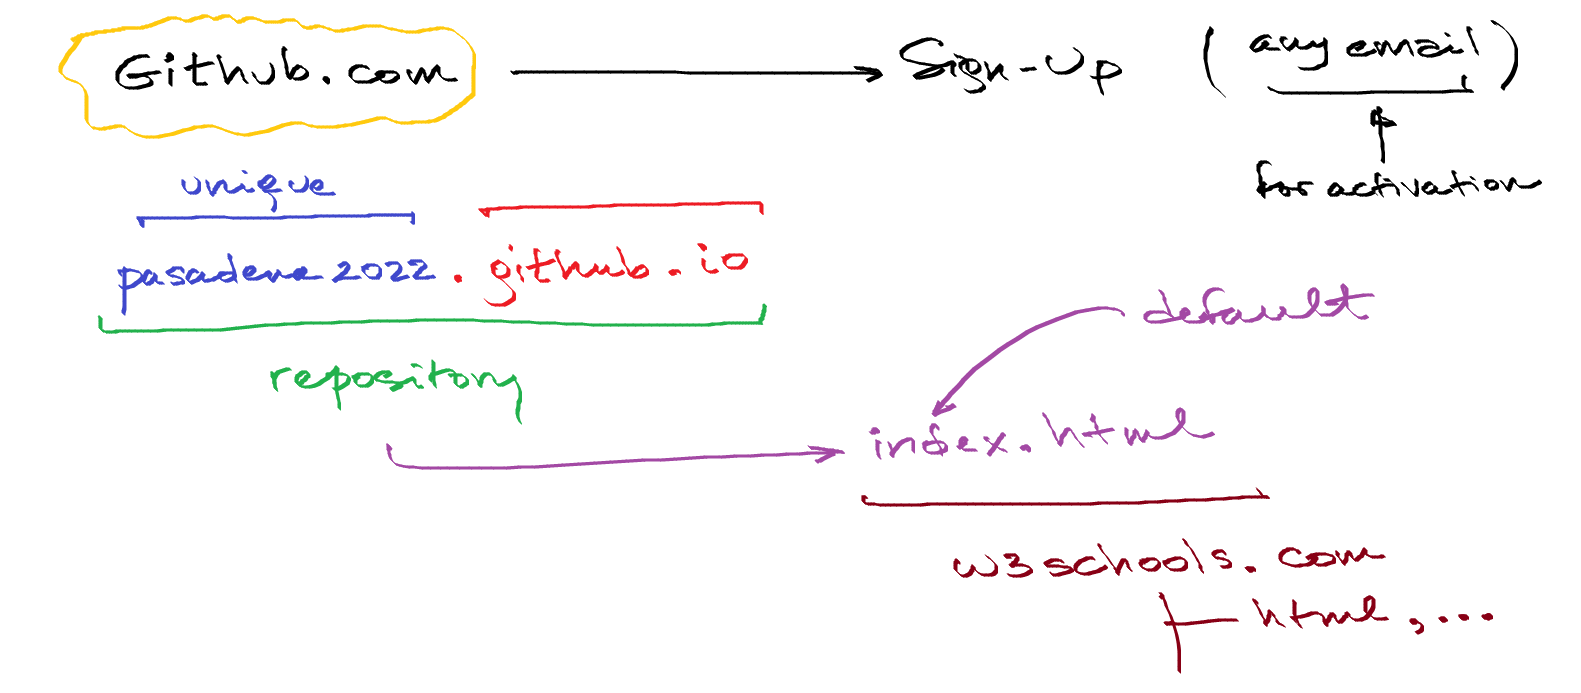 Github.com → Sign-Up (any email)
for activation
unique
pasadena2022.github.io
default
repository
index.html
w3schools.com
html,...